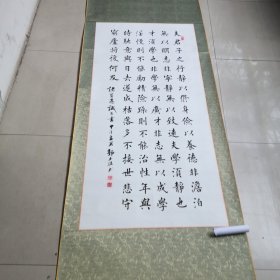 夫君子之行靜以脩身儉以養德非澹泊
無以明志非寧靜無以致遠夫學須靜也
才須學也非學無以廣才非志無以成學
慆慢則不能勵精險躁則不能治性年與
時馳意與日去遂成枯落多不接世悲守
窮廬將復何及 諸葛亮誡子書